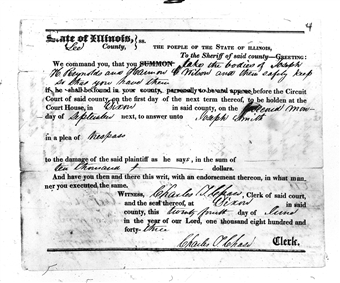 4
State of Illinois, } ss.
Lee County,
THE PEOPLE OF THE STATE OF ILLINOIS,
To the Sheriff of said county—GREETING:
We command you, that you SUMMON take the bodies of Joseph
H Reynolds and Harmon T Wilson and them safely keep
so that you have them
if he shall be found in your county, personally to be and appear before the Circuit
Court of said county, on the first day of the next term thereof, to be holden at the
Court House, in Dixon in said county, on the second Mon-
day of September next, to answer unto Joseph Smith
in a plea of trespass
to the damage of the said plaintiff as he says, in the sum of
ten thousand dollars.
And have you then and there this writ, with an endorsement thereon, in what man-
ner you executed the same.
WITNESS, Charles T Chase, Clerk of said court,
and the seal thereof, at Dixon in said
county, this twenty fourth day of June
in the year of our Lord, one thousand eight hundred and
forty-three
Charles T Chase Clerk.